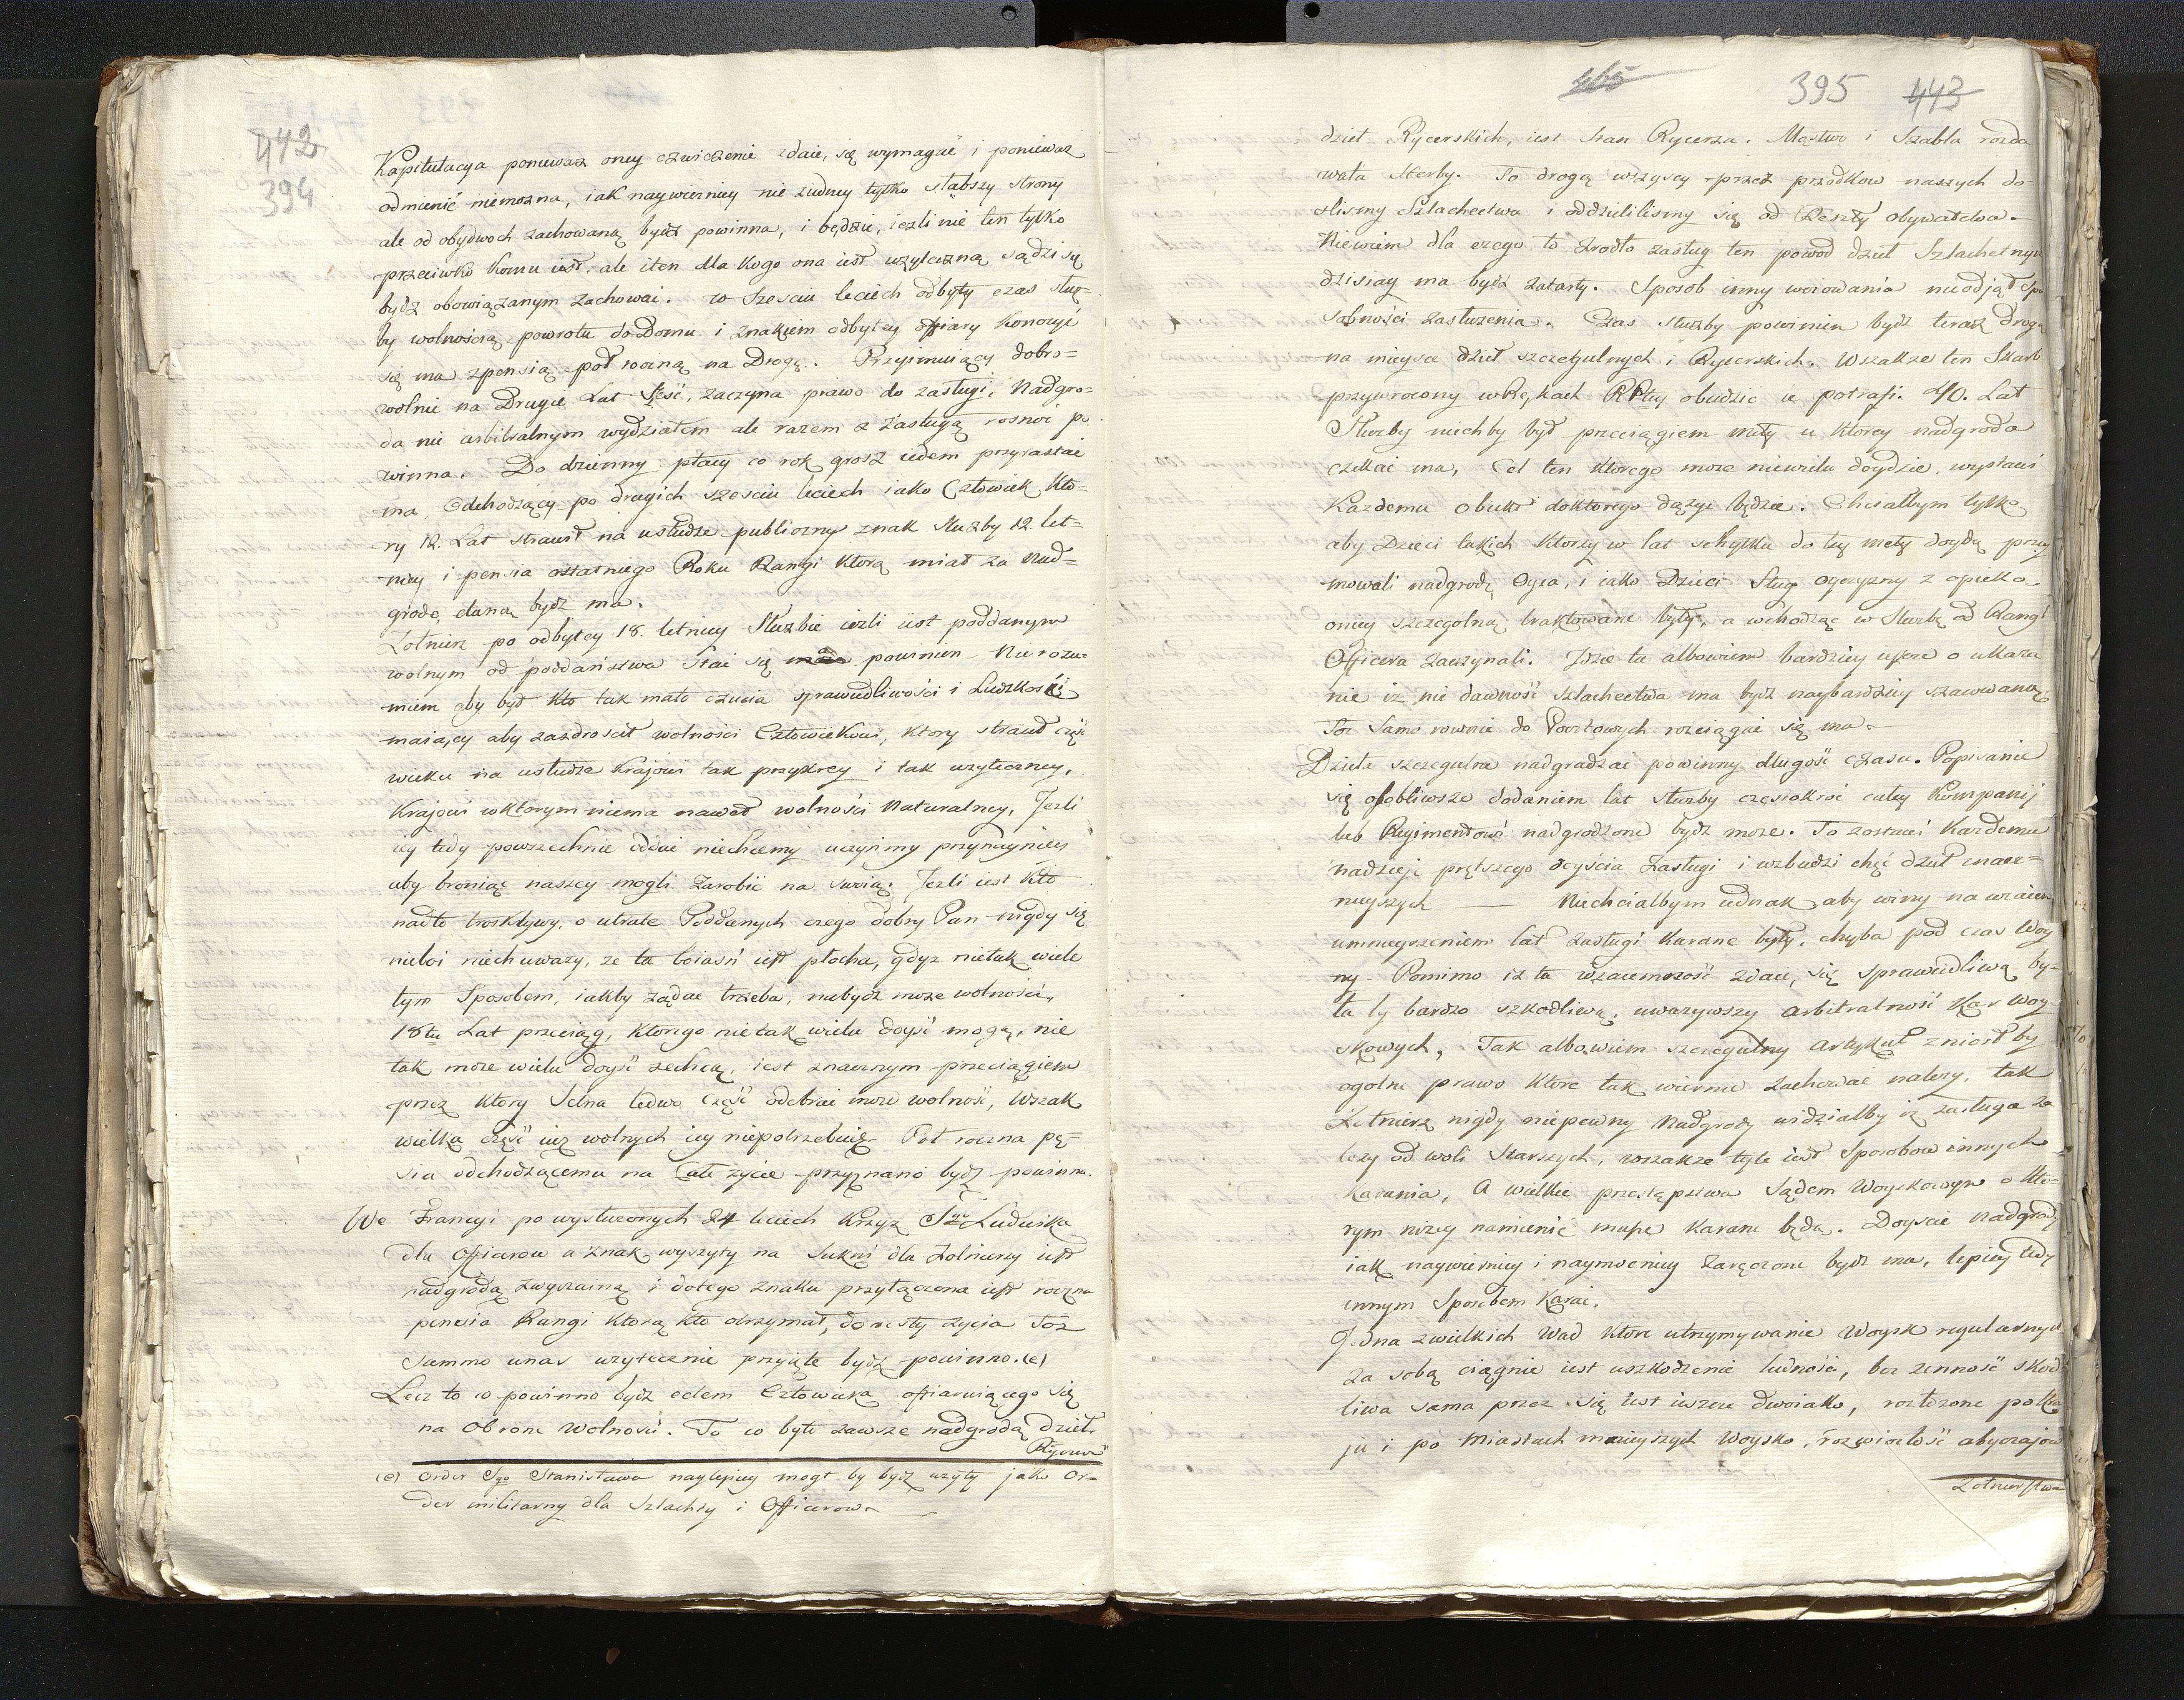 442
394
Kapitulacya ponieważ oney cwiczenie zdaie, się wymagać i ponieważ
odmienić niemozna, iak naywierniey nie zedney tylko słabszy strony
ale od obydwoch zachowaną bydz powinna, i będzie, iezli nie ten tylko
przeciwko komu iest, ale i ten dla kogo ona iest uzyteczną sądzi się
bydz obowiązanym zachować. w Szesciu leciech odbyty czas słuz-
by wolnością powrotu do Domu i znakiem odbytey offiary konczyć
się ma zpensią poł roczną na Drogę. Przyimuiący dobro-
wolnie na Drugie Lat Sześć, zaczyna prawo do zasługi, Nadgro-
da nie arbitralnym wydziałem ale razem z Zasługą rosnąć po
winna. Do dzienny płacy co rok grosz ieden przyrastai
ma. Odchodzący po drugich szesciu leciech iako Człowiek kto-
ry 12. Lat strawił na usłudze publiczny znak słuzby 12. let-
niey i pensia ostatniego Roku Rangi ktorą miał za Nad-
grodę, daną bydz ma.
Zołnierz po odbytey 18. letniey Słuzbie iezli iest poddanym
wolnym od poddaństwa stać się powinien Nie rozu-
miem aby był kto tak mało czucia sprawiedliwości i Ludzkości
maiący aby zazdrościł wolności Człowiekowi, ktory strawił część
wieku na usłudze kraiowi tak przykrey i tak uzyteczney,
Kraiowi wktorym niema nawet wolności Naturalney, Jezli
iey tedy powszechnie oddać niechcemy uczyńmy przynaymniey
aby broniąc naszey mogli zarobić na swoią. Jezli iest kto
nadto troskliwy, o utratę Poddanych czego dobry Pan nigdy się
nieboi niech uwazy, ze ta boiaźń iest płocha, gdyz nietak wiele
tym Sposobem, iakby ządać trzeba, nabydz może wolności,
18tu Lat przeciąg, ktorego nie tak wielu doyść mogą, nie
tak moze wielu doyść zechcą, iest znacznym przeciągiem
przez ktory Setna ledwo Część odebrać moze wolność, Wszak
wielka część iuz wolnych iey niepotrzebuie. Poł roczna pę-
sia odchodzącemu na Całe zycie przyznano bydz powinna.
We Francyi po wysłuzonych 24 leciech Krzyż Sgo Ludwika
dla Officerow a znak wyszyty na sukni dla Zołnierzy iest
nadgrodą zwyczainą i dotego znaku przyłączona iest roczna
pensia Rangi ktorą kto otrzymał, do reszty zycia Toz
sammo unas uzytecznie przyięte bydz powinno. (e)
Lecz to co powinno bydz celem Człowieka offiaruiącego się
na Obronę Wolności. To co było zawsze nadgrodą Dzieł
Rycers
(e) Order Sgo Stanisława naylepiey mogł by bydz uzyty jako Or-
der militarny dla Szlachty i Officerow
465
395 443
dzieł Rycerskich, iest stan Rycerza. Męstwo i Szabla rozda
wała Herby. Tą drogą wszyscy przez przodkow naszych do-
szlismy Szlachectwa i oddzielilismy się od Reszty obywatelow.
Niewiem dla czego to zrodło zasług ten powod dzieł Szlachetnych
dzisiay ma bydz zatarty. Sposob inny woiowania nieodjął spo
sobności zasłuzenia. Czas słuzby powinien bydz teraz drogą
na mieysce dzieł szczegulnych i Rycerskich. Wszakze ten Skarb
przywrocony wRękach RPltey obudzic ie potrafi. 40. Lat
Słuzby niechby był przeciągiem mety u ktorey nadgroda
czekać ma, Cel ten ktorego moze niewielu doydzie, wystawi
Kazdemu obiekt doktorego dązyć będzie. Chciałbym tylko
aby Dzieci takich ktorzy w lat schyłku do tey mety doydą przy
mowali nadgrodę Oyca, i iako Dzieci Sług Oyczyzny z opieką
oniey szczegolną traktowane były, a wchodząc w słuzbę od Rangi
Officera zaczynali. Idzie tu albowiem bardziey ieszcze o ukaza
nie iz nie dawność szlachectwa ma bydz naybardziey szacowaną.
Toz Samo rownie do Pocztowych rozciągać się ma.
Dzieła szczegulne nadgradzać powinny długość czasu. Popisanie
się osobliwsze dodaniem lat słuzby częstokroć całey Kompanij
lub Regimentowi nadgrodzone bydz moze. To zostawi kazdemu
nadzieję prętszego doyścia Zasługi i wzbudzi chęć dzieł znacz-
nieyszych — Niechciałbym iednak aby winy nawzaiem
umnieyszeniem lat zasługi karane były, chyba pod czas Woy
ny. Pomimo iz ta wzaiemność zdaie, się sprawiedliwą by-
ła by bardzo szkodliwą, uwazywszy arbitralność Kar Woy
skowych, Tak albowiem szczegulny artykuł zniosł by
ogolne prawo ktore tak wiernie zachować nalezy, tak
Zołnierz nigdy niepewny Nadgrody widziałby iz zasługa za
lezy od woli Starszych, wszakze tyle iest Sposobow innych
karania, A wielkie przestępstwa Sądem Woyskowym o kto-
rym nizey namienić muszę karane będą. Doyscie Nadgrody
iak naywierniey i naymocniey zaręczone bydz ma, lepiey tedy
innym Sposobem karać.
Jedna zwielkich Wad ktore utrzymywanie Woysk regularnych
za sobą ciągnie iest uszkodzenie ludności, bez zenność szkod
liwa sama przez się iest ieszcze dwoiako, rozłozone po Kra
ju i po Miastach mnieyszych Woysko, rozwiozłość obyczajow
Zołnierstwa